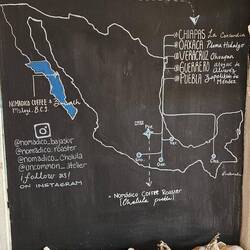 @CHIAPAS La Concordia
@OAXACA Pluma Hidalgo
@VERACRUZ
@GUERRERO Atoyac de Álvarez
@PUEBLA Zapotitlán de Méndez
NOMÁDICO COFFEE & Brunch
Mxli, B.C.
CDMX
@nomadico_bajasur
@nomadico_roaster
@nomadico_cholula
@uncommon_atelier
¡follow us!
ON INSTAGRAM
* NOMÁDICO COFFEE ROASTER
(Cholula, Puebla)